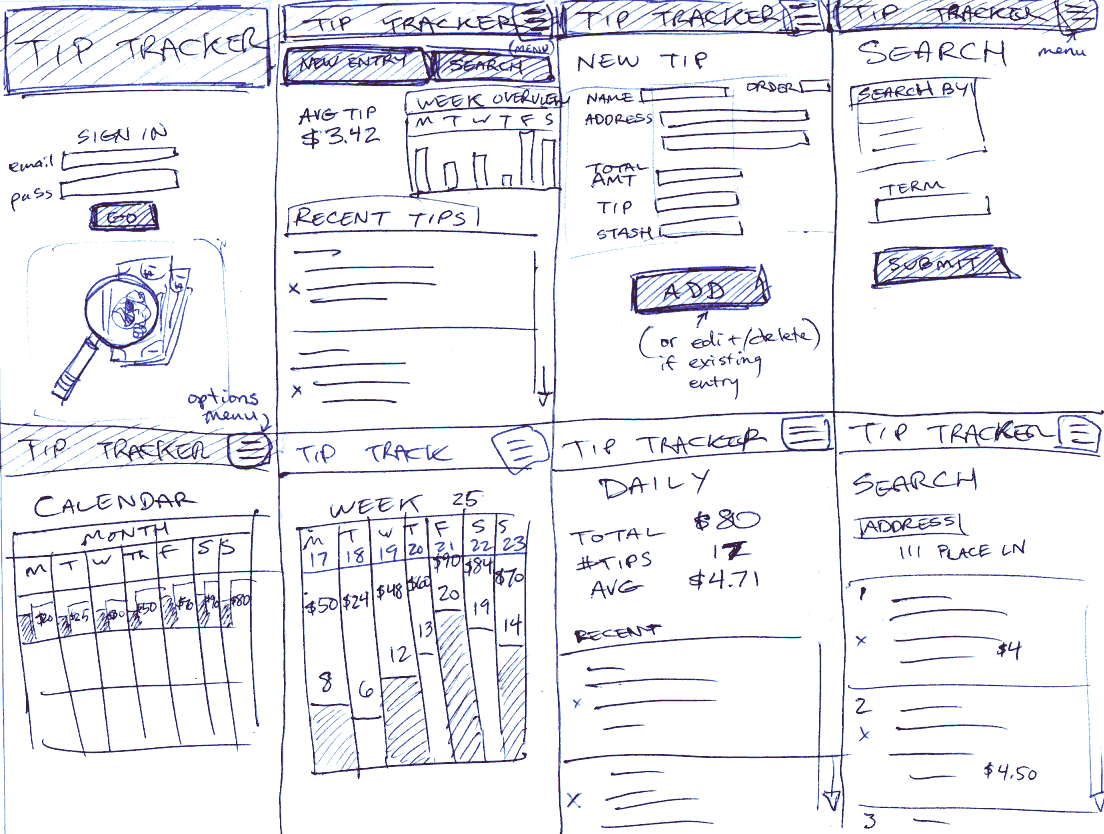 TIP TRACKER
SIGN IN
email
pass
GO
TIP TRACKER
(MENU)
NEW ENTRY
SEARCH
AVG TIP
$3.42
WEEK OVERVIEW
M T W T F S
RECENT TIPS
x
x
TIP TRACKER
NEW TIP
NAME
ORDER
ADDRESS
TOTAL
AMT
TIP
STASH
ADD
(or edit/delete)
if existing
entry
TIP TRACKER
menu
SEARCH
SEARCH BY
TERM
SUBMIT
options
menu
TIP TRACKER
CALENDAR
MONTH
M T W TH F S S
$25
$50
$80
TIP TRACK
WEEK 25
M T W T F S S
17 18 19 20 21 22 23
$50 $24 $48 $60 $90 $84 $70
8 6 12 13 20 19 14
TIP TRACKER
DAILY
TOTAL $80
#TIPS 17
AVG $4.71
RECENT
x
x
TIP TRACKER
SEARCH
ADDRESS
111 PLACE LN
1
x
$4
2
x
$4.50
3